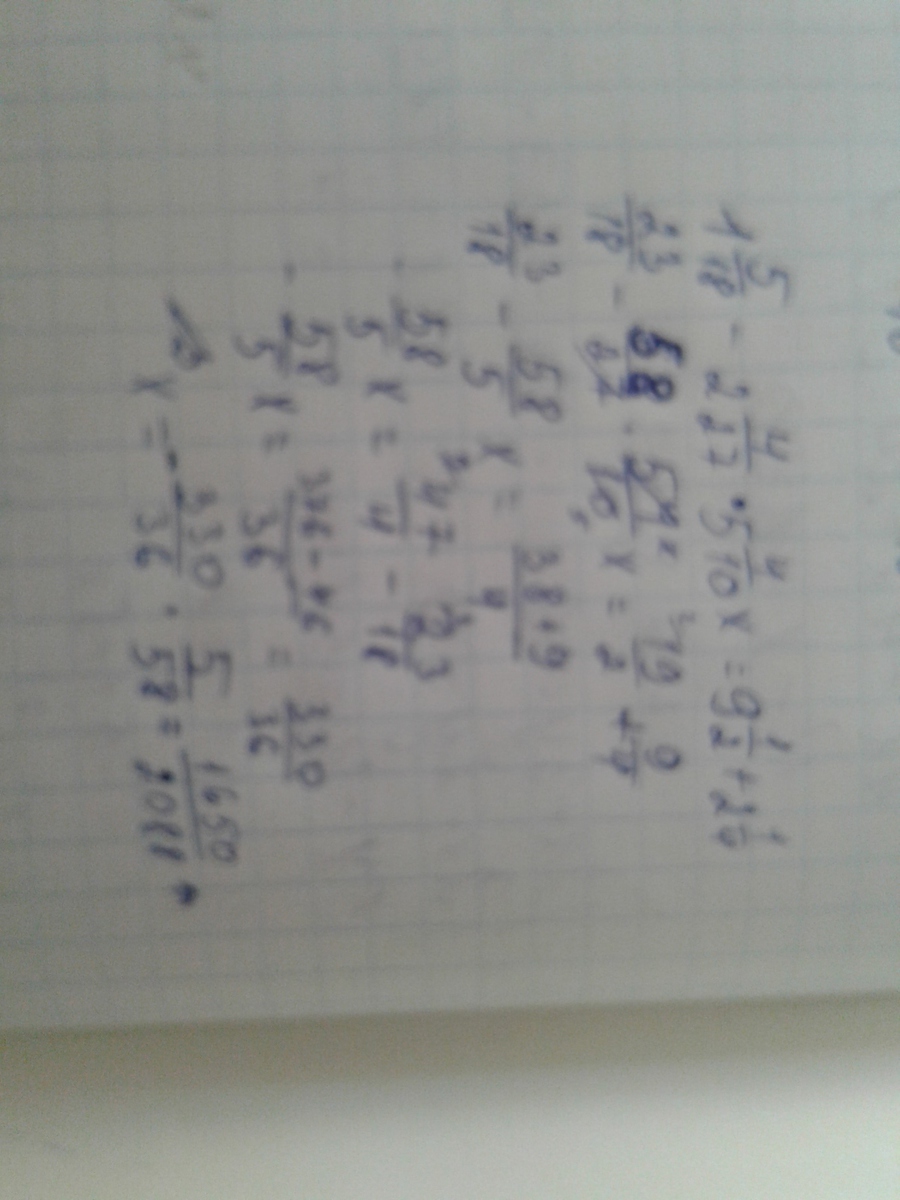 1 5/18 - 2 4/27 · 5 4/10 x = 9 1/2 + 2 1/4
23/18 - 58/27 · 54/10 x = 19/2 + 9/4
23/18 - 58/5 x = 38+9/4
- 58/5 x = 47/4 - 23/18
- 58/5 x = 376-46/36 = 330/36
x = - 330/36 · 5/58 = 1650/2088